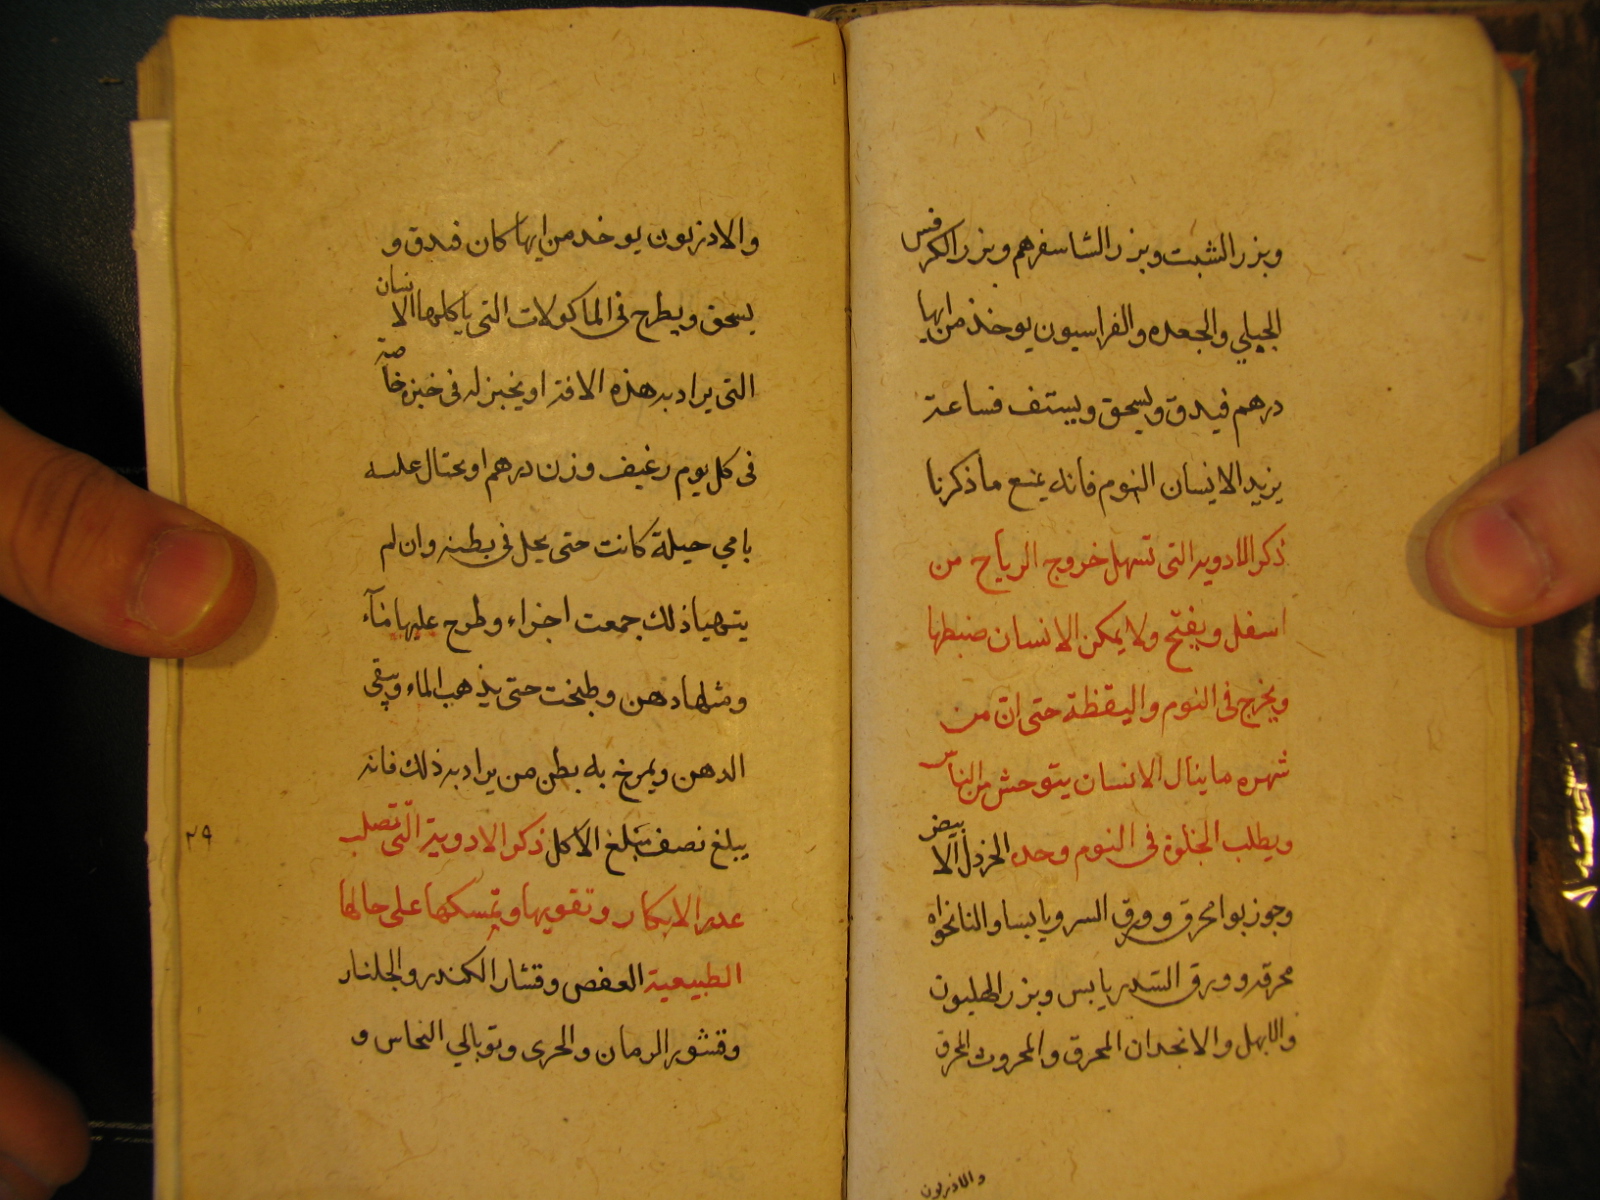 وبزر الشبت وبزر الشاسفرهم وبزر الكرفس
الجبلي والجعده والفراسيون يوخذ من ايها
درهم فيدق ويسحق ويستف فساعة
يريد الانسان النوم فانه يمنع ما ذكرنا
ذكر الادوية التى تسهل خروج الرياح من
اسفل ويفتح ولا يمكن الانسان ضبطها
ويخرج فى النوم واليقظة حتى ان من
شهره ما ينال الانسان يتوحش من الناس
ويطلب الخلوة فى النوم وحده الخردل الابيض
وجوز بوا محرق وورق السرو يابسا والنانخواه
محرقه وورق السدر يابس وبزر الهليون
والابهل والانجدان المحرق والمحروث المحرق
والاذريون
والاذريون يوخذ من ايها كان فيدق و
يسحق ويطرح فى الماكولات التى ياكلها الانسان
التى يراد به هذه الافة او يخبز له فى خبزه خاصة
فى كل يوم رغيف وزن درهم او يحتال عليه
باي حيلة كانت حتى يحل فى بطنه وان لم
يتهيا ذلك جمعت اجزاء وطرح عليها ماء
ومثلها دهن وطبخت حتى يذهب الماء ويبقى
الدهن ويمرخ به بطن من يراد به ذلك فانه
يبلغ نصف مبلغ الاكل ذكر الادوية التى تصلب
عدر الابكار وتقويها وتمسكها على حالها
الطبيعية العفص وقشار الكندر والجلنار
وقشور الرمان والحرى وتوبالي النحاس و
٢٩